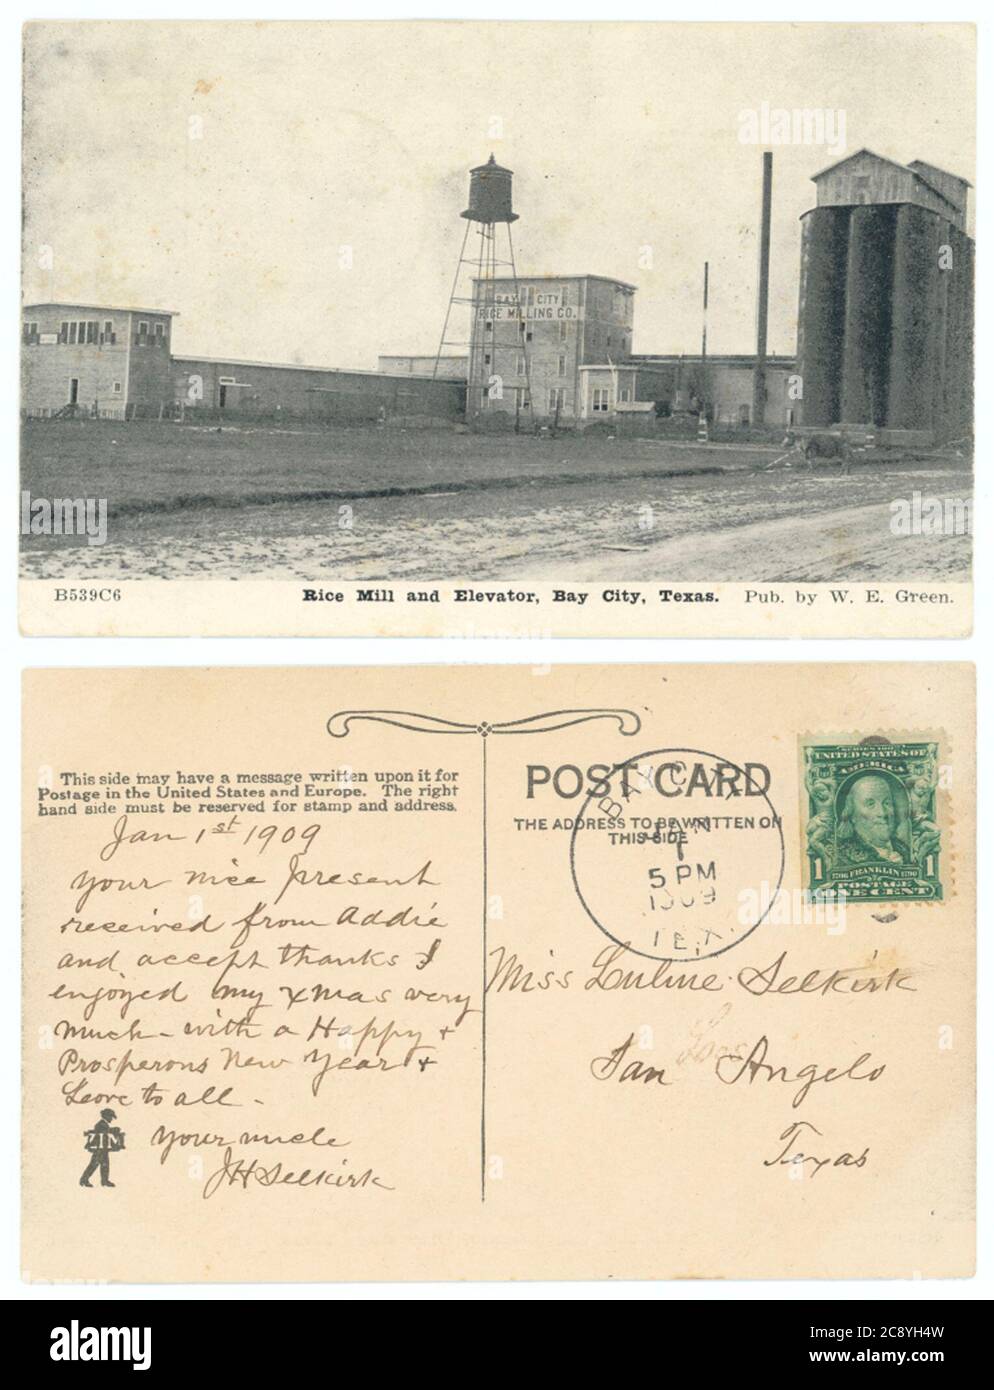 BAY CITY
RICE MILLING CO.
B539C6 Rice Mill and Elevator, Bay City, Texas. Pub. by W. E. Green.
This side may have a message written upon it for
Postage in the United States and Europe. The right
hand side must be reserved for stamp and address.
Jan 1st 1909
Your nice present
received from Addie
and accept thanks I
enjoyed my Xmas very
much - with a Happy +
Prosperous New Year +
Love to all -
Your uncle
JH Selkirk
ZIM
POST CARD
THE ADDRESS TO BE WRITTEN ON
THIS SIDE
BAY CITY
JAN
1
5 PM
1909
TEX.
SERIES 1902
UNITED STATES OF
AMERICA
1706 FRANKLIN 1790
1 1
POSTAGE
ONE CENT
Miss Selkirk
San Angelo
Texas
alamy
alamy
alamy
alamy
alamy
Image ID: 2C8YH4W
www.alamy.com